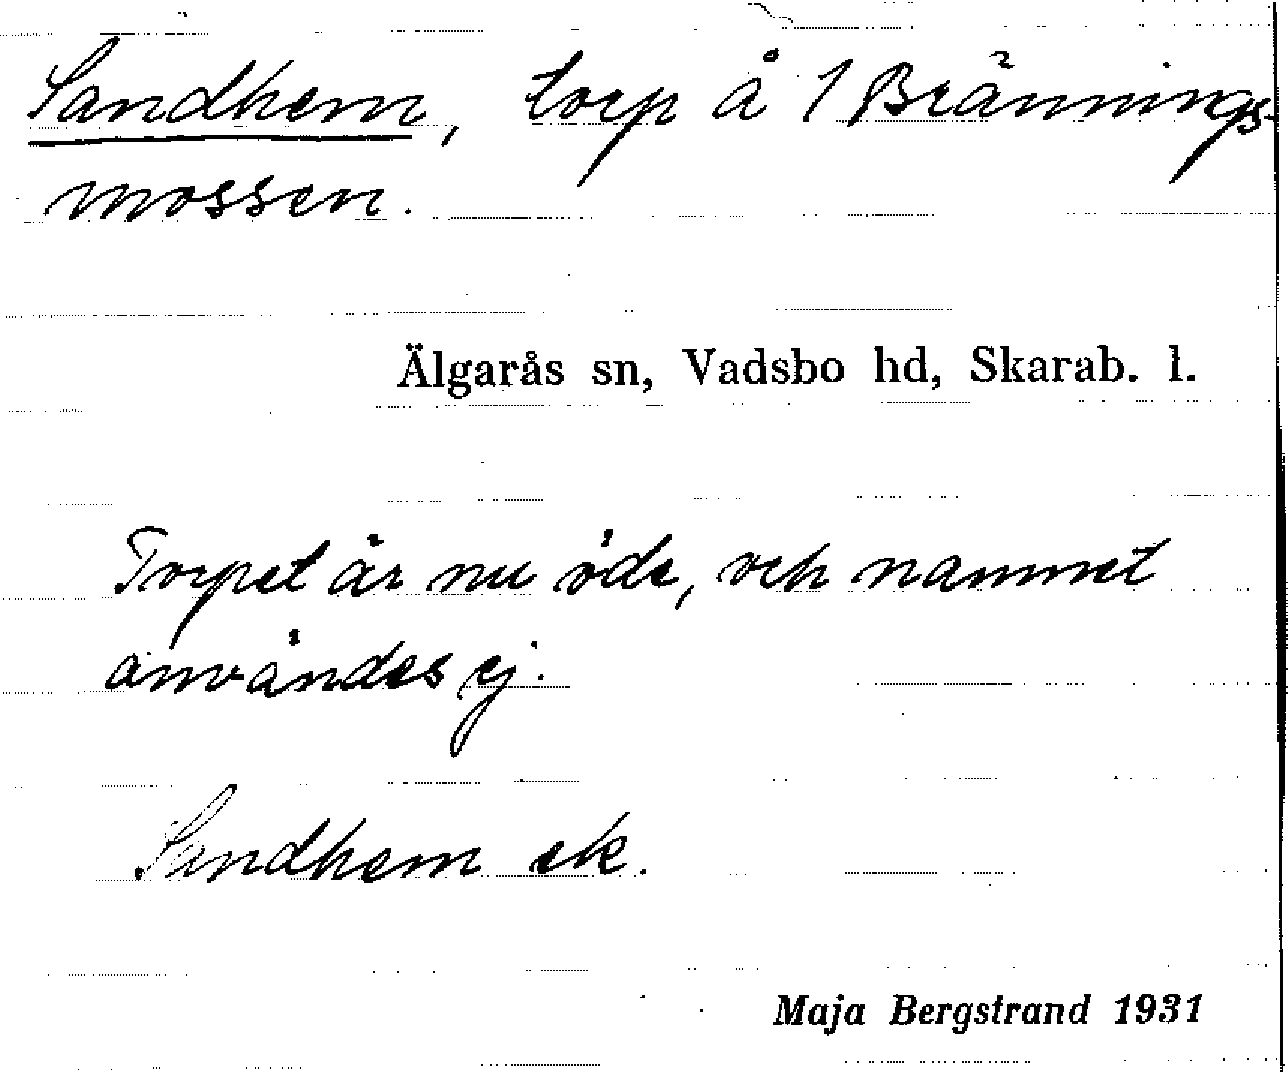 Sandhem, torp å 1 Brännings-
mossen.
Älgarås sn, Vadsbo hd, Skarab. l.
Torpet är nu öde, och namnet
användes ej.
Sandhem ek.
Maja Bergstrand 1931